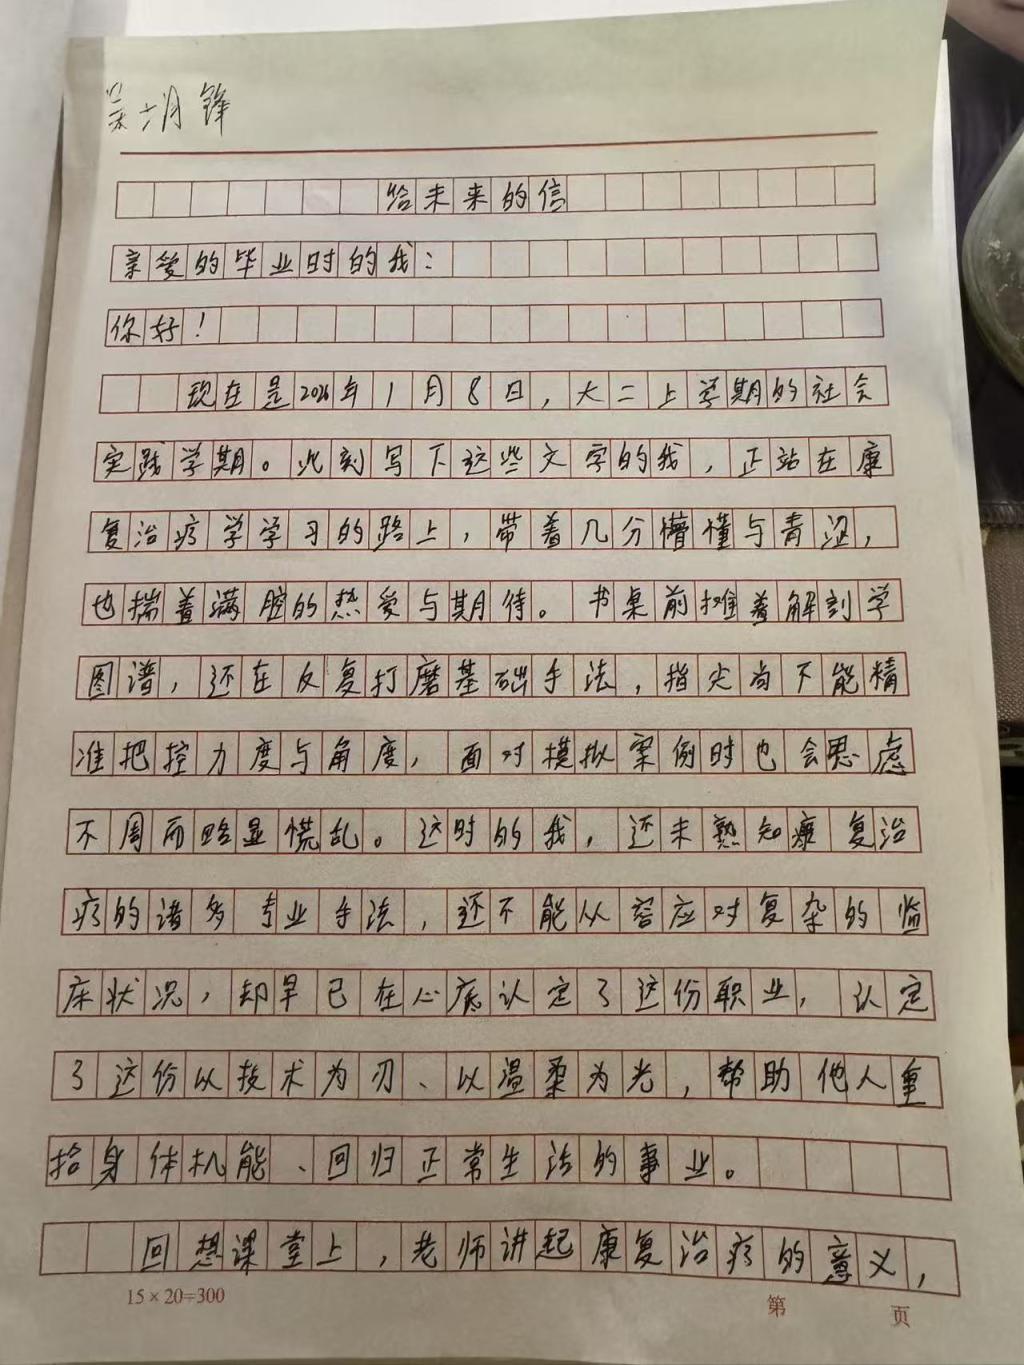 吴六月锋
给未来的信
亲爱的毕业时的我：
你好！
现在是2026年1月8日，大二上学期的社会
实践学期。此刻写下这些文字的我，正站在康
复治疗学学习的路上，带着几分懵懂与青涩，
也揣着满腔的热爱与期待。书桌前堆着解剖学
图谱，还在反复打磨基础手法，指尖尚不能精
准把控力度与角度，面对模拟案例时也会思虑
不周而略显慌乱。这时的我，还未熟知康复治
疗的诸多专业手法，还不能从容应对复杂的临
床状况，却早已在心底认定了这份职业，认定
了这份以技术为刃、以温柔为光，帮助他人重
拾身体机能、回归正常生活的事业。
回想课堂上，老师讲起康复治疗的意义，
15×20=300
第 页